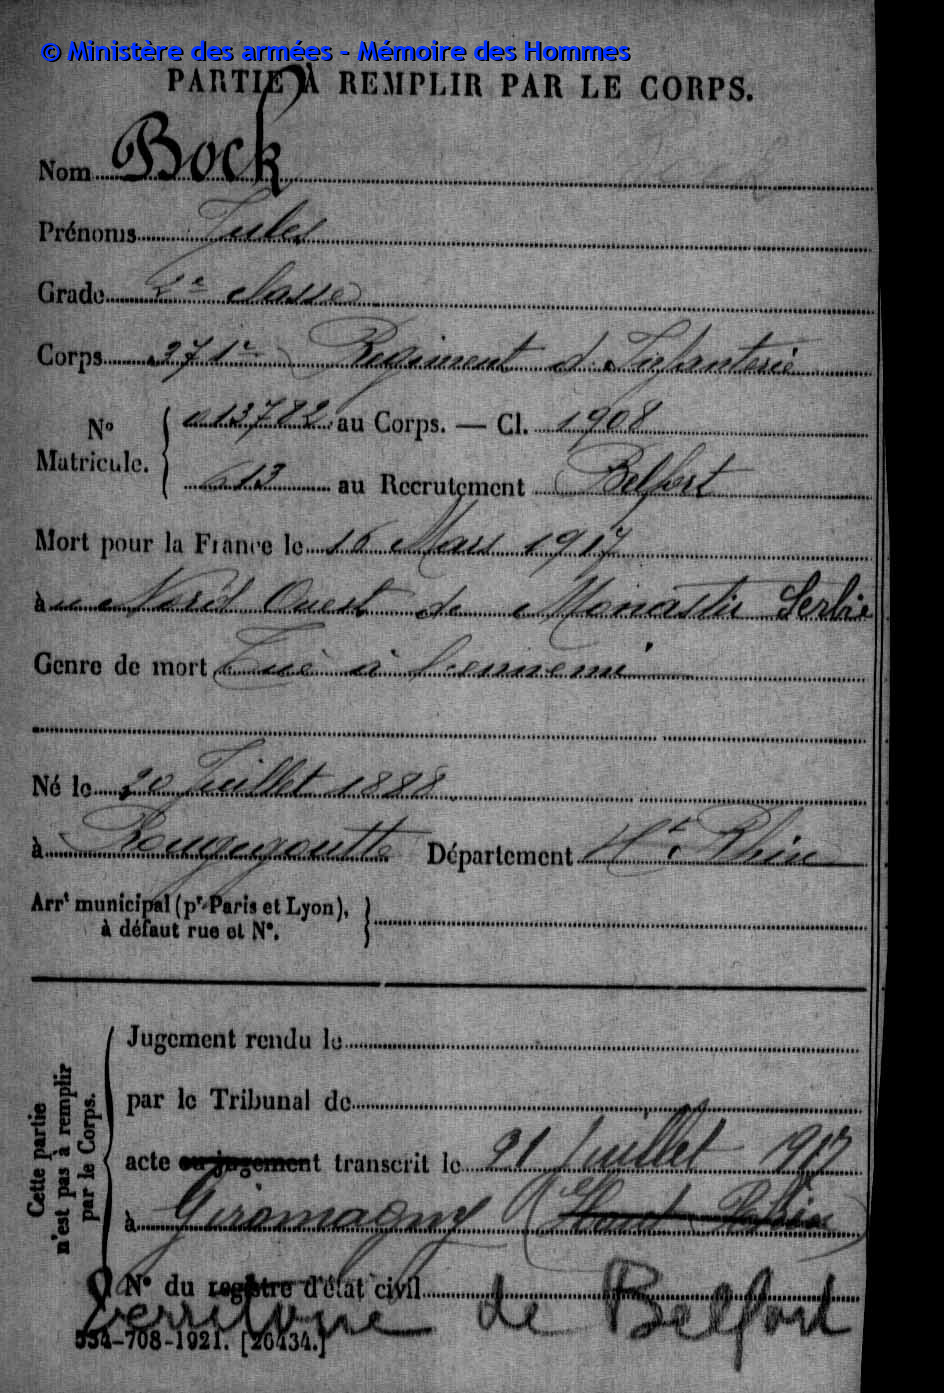 © Ministère des armées - Mémoire des Hommes
PARTIE À REMPLIR PAR LE CORPS.
Nom Bock
Prénoms Jules
Grade 2e classe
Corps 371e Régiment d'Infanterie
No Matricule. 013782 au Corps. — Cl. 1908
613 au Recrutement Belfort
Mort pour la France le 16 Mars 1917
à u Nord Ouest de Monastir Serbie
Genre de mort Tué à l'ennemi
Né le 20 Juillet 1888
à Rougegoutte Département Ht Rhin
Arrt municipal (pr Paris et Lyon),
à défaut rue et No.
Cette partie
n'est pas à remplir
par le Corps.
Jugement rendu le
par le Tribunal de
acte ou jugement transcrit le 21 Juillet 1917
à Giromagny (Haut Rhin)
No du registre d'état civil
Territoire de Belfort
534-708-1921. [26434.]